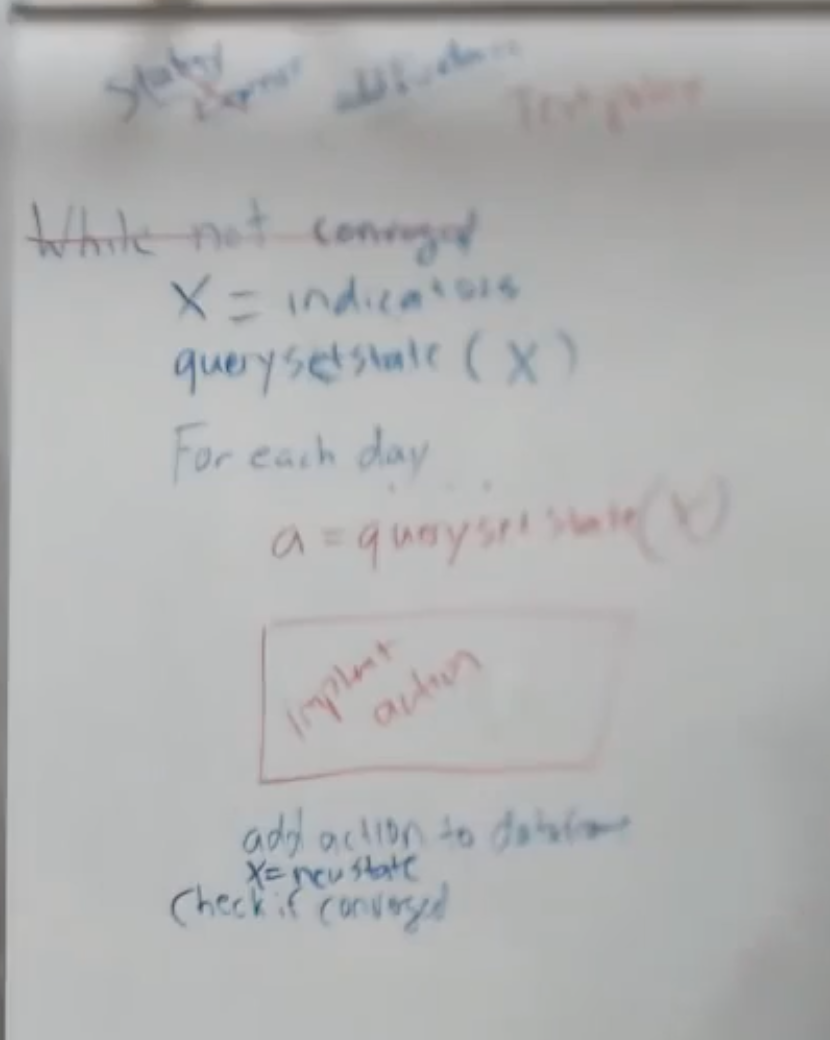 Test policy
While not converged
X = indicators
querysetstate (X)
For each day
a = querysetstate(X)
implmt
action
add action to dataframe
x = new state
Check if converged